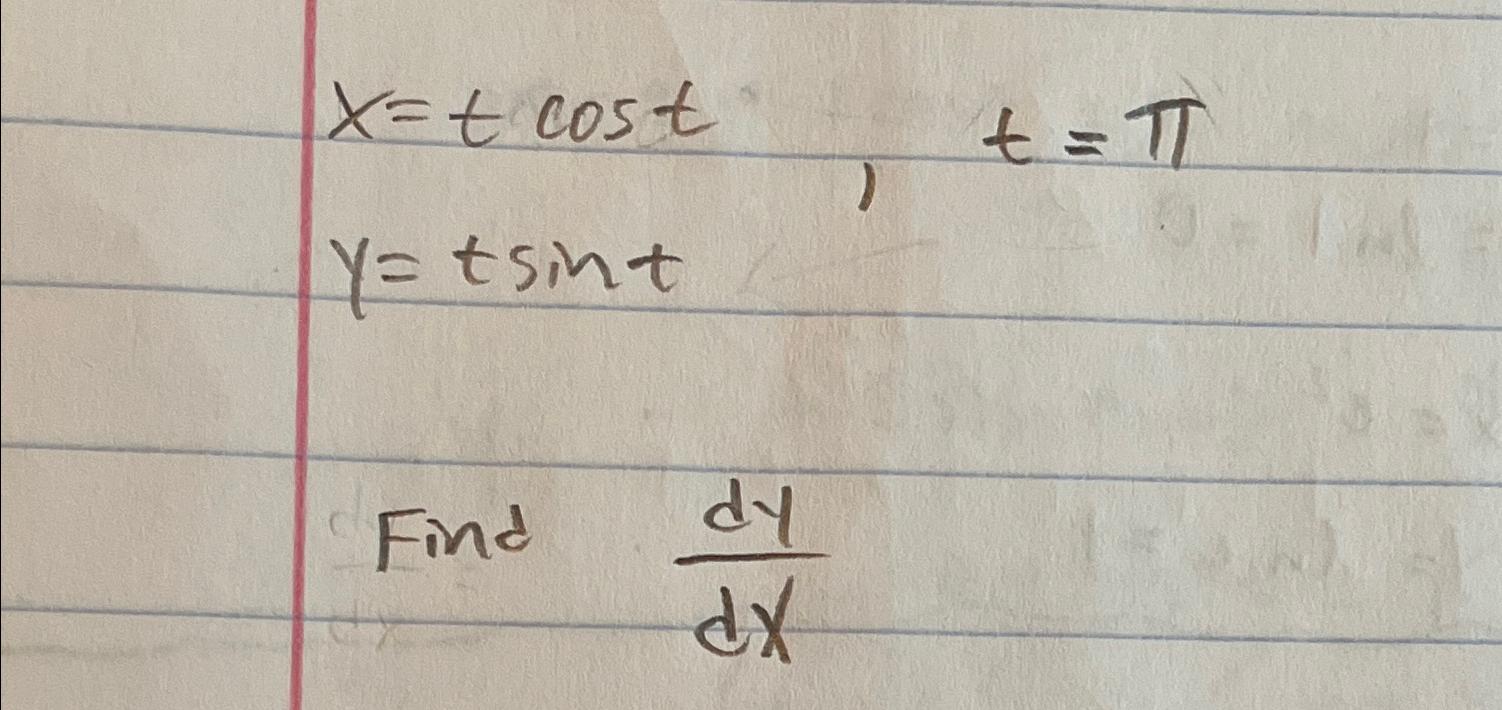 x = t cos t , t = π
y = t sin t
Find dy/dx